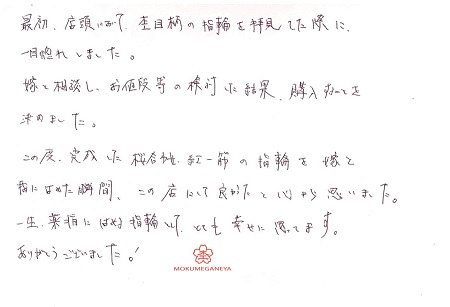 最初、店頭にて、杢目柄の指輪を拝見した際に、
一目惚れしました。
嫁と相談し、お値段等の検討した結果、購入することを
決めました。
この度、完成した桜合せ、紅一筋の指輪を嫁と
指にはめた瞬間、この店にして良かったと心から思いました。
一生、薬指にはめる指輪として、とても幸せに思ってます。
ありがとうございました。!
MOKUMEGANEYA